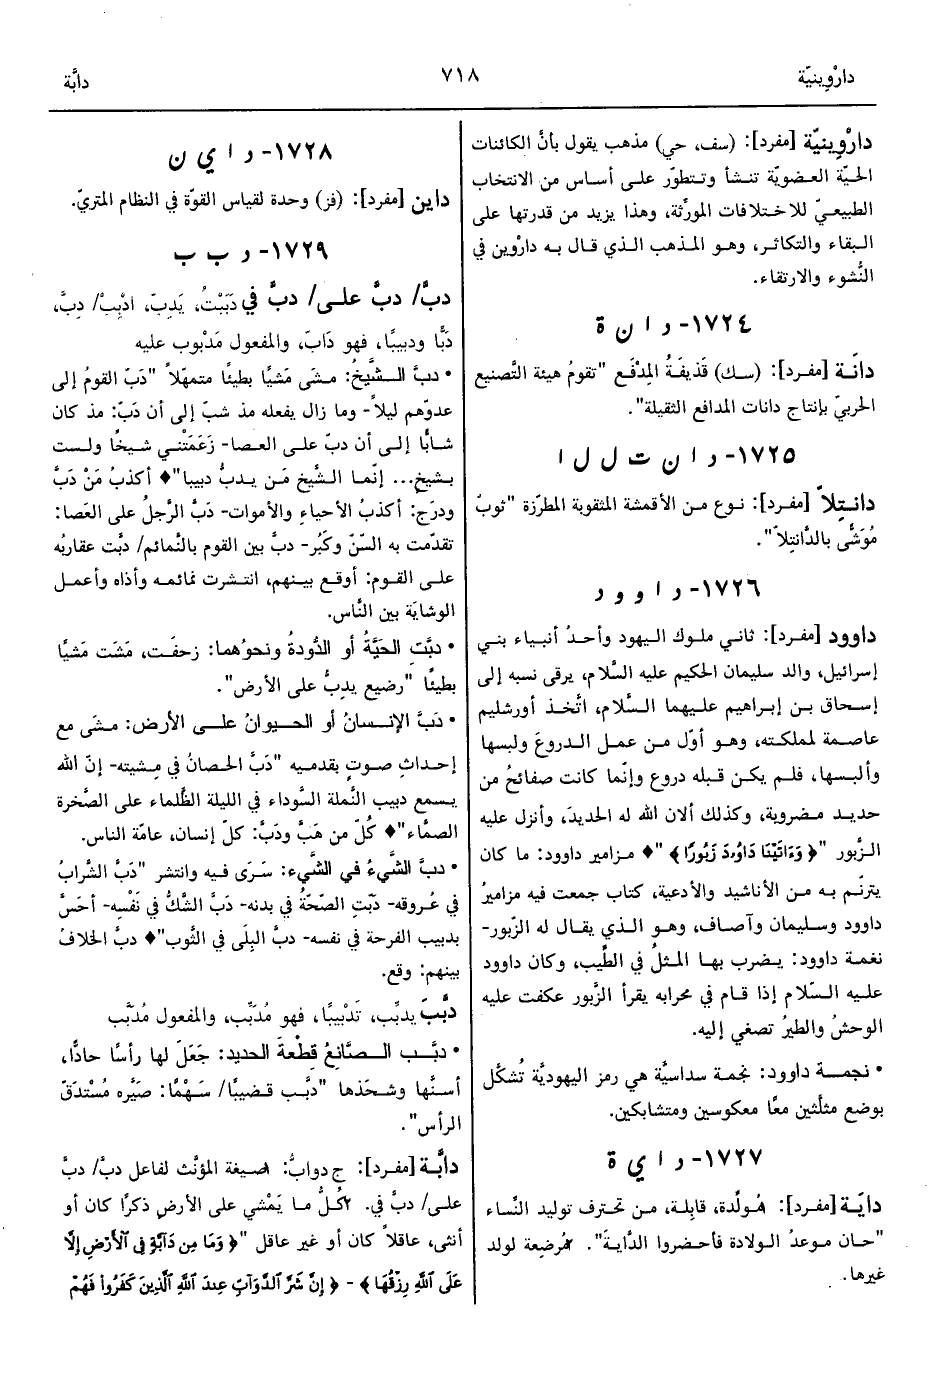 دارْوِينيّة
٧١٨
دابَّة
دارْوِينيّة [مفرد]: (سف، حي) مذهب يقول بأنَّ الكائنات
الحيّة العضويّة تنشأ وتتطوّر على أساس من الانتخاب
الطبيعيّ للاختلافات المورَّثة، وهذا يزيد من قدرتها على
البقاء والتكاثر، وهو المذهب الذي قال به دارْوين في
النُّشوء والارتقاء.
١٧٢٤- د ا ن ة
دانَة [مفرد]: (سك) قَذيفَةُ المِدْفَع "تقومُ هيئة التَّصنيع
الحربيّ بإنتاج دانات المدافع الثقيلة".
١٧٢٥- د ا ن ت ل ل ا
دانتِلاّ [مفرد]: نوع من الأقمشة المثقوبة المطرّزة "ثوبٌ
مُوَشًّى بالدَّانتِلاّ".
١٧٢٦- د ا و و د
داوود [مفرد]: ثاني ملوك اليهود وأحدُ أنبياء بني
إسرائيل، والد سليمان الحكيم عليه السَّلام، يرقى نسبه إلى
إسحاق بن إبراهيم عليهما السَّلام، اتَّخذ أورشليم
عاصمة لمملكته، وهو أوّل من عمل الدروعَ ولبسها
وألبسها، فلم يكن قبله دروع وإنّما كانت صفائحُ من
حديد مضروبة، وكذلك ألان الله له الحديدَ، وأنزل عليه
الزَّبور "﴿ وَءَاتَيْنَا دَاوُۥدَ زَبُورًا ﴾"♦ مزامير داوود: ما كان
يترنَّم به من الأناشيد والأدعية، كتاب جمعت فيه مزاميرُ
داوود وسليمان وآصاف، وهو الذي يقال له الزَّبور-
نغمة داوود: يضرب بها المثلُ في الطِّيب، وكان داوود
عليه السَّلام إذا قام في محرابه يقرأ الزَّبور عكفت عليه
الوحشُ والطيرُ تصغي إليه.
• نجمة داوود: نجمة سداسيَّة هي رمز اليهوديَّة تُشكَّل
بوضع مثلَّثين معًا معكوسين ومتشابكين.
١٧٢٧- د ا ي ة
دايَة [مفرد]: ١مُولِّدة، قابِلة، من تحترف توليد النِّساء
"حان موعدُ الولادة فأحضروا الدَّايةَ". ٢مُرضِعة لولد
غيرها.
١٧٢٨- د ا ي ن
داين [مفرد]: (فز) وحدة لقياس القوّة في النظام المتريّ.
١٧٢٩- د ب ب
دبَّ/ دبَّ على/ دبَّ في دَبَبْتُ، يَدِبّ، ادْبِبْ/ دِبَّ،
دَبًّا ودبيبًا، فهو دَابّ، والمفعول مَدْبوب عليه
• دبَّ الشَّيخُ: مشَى مَشيًا بطيئًا متمهّلاً "دَبّ القومُ إلى
عدوّهم ليلاً- وما زال يفعله مذ شبّ إلى أن دَبّ: مذ كان
شابًّا إلى أن دبّ على العصا- زَعَمَتْني شيخًا ولست
بشيخٍ... إنّما الشَّيخ مَن يدبُّ دبيبا"♦ أكذبُ مَنْ دَبَّ
ودرَج: أكذبُ الأحياءِ والأموات- دَبَّ الرَّجلُ على العَصا:
تقدّمت به السّنّ وكَبُر- دبَّ بين القوم بالنَّمائم/ دبَّت عقاربُه
على القوم: أوقع بينهم، انتشرت نمائمه وأذاه وأعمل
الوشايَة بين النَّاس.
• دبَّتِ الحَيَّةُ أو الدُّودةُ ونحوُهما: زحفَت، مَشَت مَشيًا
بطيئًا "رضيع يدِبُّ على الأرض".
• دَبَّ الإنسانُ أو الحيوانُ على الأرض: مشَى مع
إحداثِ صوتٍ بقدميه "دَبَّ الحصانُ في مِشيته- إنّ الله
يسمع دبيب النَّملة السَّوداء في الليلة الظَّلماء على الصَّخرة
الصمَّاء"♦ كُلّ من هَبَّ ودَبَّ: كلّ إنسان، عامّة الناس.
• دبَّ الشَّيءُ في الشَّيء: سَرَى فيه وانتشر "دَبّ الشَّرابُ
في عُروقه- دَبّتِ الصّحَّةُ في بدنه- دَبَّ الشَّكُّ في نَفْسِه- أحَسَّ
بدبيب الفرحة في نفسه- دبَّ البِلَى في الثَّوب"♦ دبَّ الخلافُ
بينهم: وقع.
دبَّبَ يدبِّب، تَدْبيبًا، فهو مُدَبِّب، والمفعول مُدَبَّب
• دبَّب الصَّانِعُ قِطْعةَ الحديد: جَعَلَ لها رأسًا حادًّا،
أسنَّها وشحَذها "دبَّب قضيبًا/ سَهْمًا: صيَّره مُسْتدَقّ
الرأس".
دابَّة [مفرد]: ج دوابُّ: ١صيغة المؤنَّث لفاعل دبَّ/ دبَّ
على/ دبَّ في. ٢كُلُّ ما يَمْشي على الأرضِ ذكرًا كان أو
أنثى، عاقلاً كان أو غير عاقل "﴿ وَمَا مِن دَآبَّةٍ فِي ٱلْأَرْضِ إِلَّا
عَلَى ٱللَّهِ رِزْقُهَا ﴾ - ﴿ إِنَّ شَرَّ ٱلدَّوَآبِّ عِندَ ٱللَّهِ ٱلَّذِينَ كَفَرُوا۟ فَهُمْ